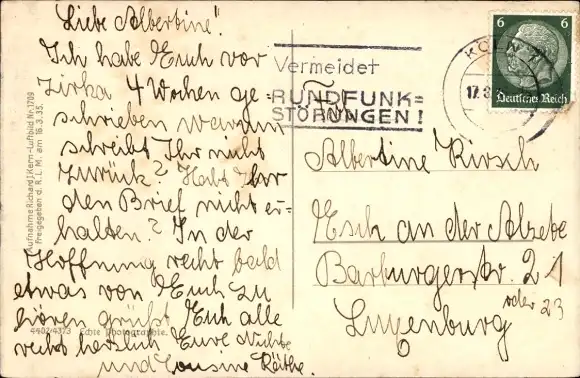 Liebe Albertine".
Ich habe Euch vor
zirka 4 Wochen ge-
schrieben warum
schreibt Ihr nicht
zurück? Habt Ihr
den Brief nicht er-
halten? In der
Hoffnung recht bald
etwas von Euch zu
hören grüßt Euch alle
recht herzlich Eure Nichte
und Cousine Käthe.
Aufnahme Richard J. Kern-Luftbild Nr. 1709
Freigegeben d. R. L. M. am 16.3.35.
4402/4373 Echte Photographie.
Vermeidet
RUNDFUNK=
STÖRUNGEN!
KÖLN
17.3.
6 6
Deutsches Reich
Albertine Kirsch
Esch an der Alzette
Barburgerstr. 21
oder 23
Luxenburg